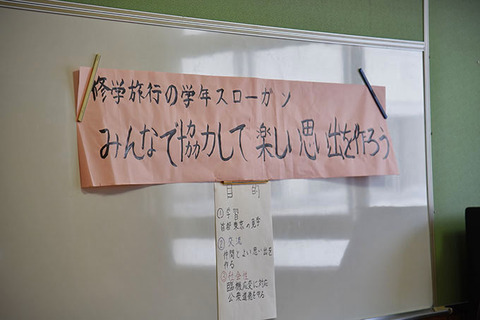 修学旅行の学年スローガン
みんなで協力して楽しい思い出を作ろう
目的
①学習
首都東京の見学
②交流
仲間とよい思い出を
作る
③社会性
臨機応変に対応
公衆道徳を守る